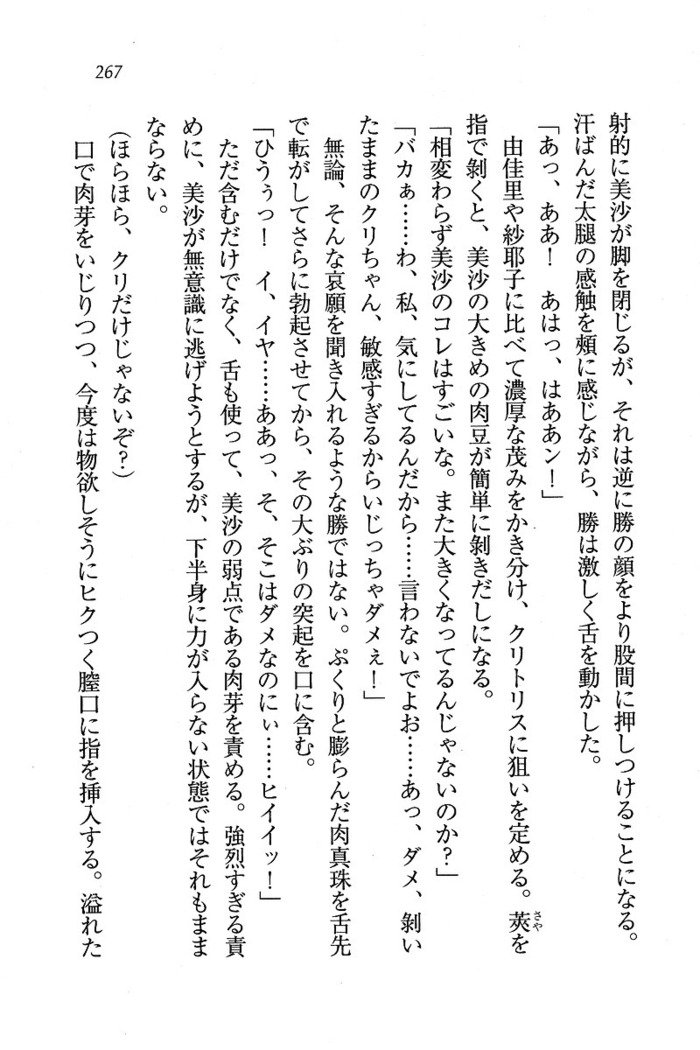 267
射的に美沙が脚を閉じるが、それは逆に勝の顔をより股間に押しつけることになる。
汗ばんだ太腿の感触を頬に感じながら、勝は激しく舌を動かした。
「あっ、ああ！　あはっ、はああン！」
　由佳里や紗耶子に比べて濃厚な茂みをかき分け、クリトリスに狙いを定める。莢を
さや
指で剝くと、美沙の大きめの肉豆が簡単に剝きだしになる。
「相変わらず美沙のコレはすごいな。また大きくなってるんじゃないのか？」
「バカぁ……わ、私、気にしてるんだから……言わないでよお……あっ、ダメ、剝い
たままのクリちゃん、敏感すぎるからいじっちゃダメぇ！」
　無論、そんな哀願を聞き入れるような勝ではない。ぷくりと膨らんだ肉真珠を舌先
で転がしてさらに勃起させてから、その大ぶりの突起を口に含む。
「ひうぅっ！　イ、イヤ……ああっ、そ、そこはダメなのにぃ……ヒイイッ！」
　ただ含むだけでなく、舌も使って、美沙の弱点である肉芽を責める。強烈すぎる責
めに、美沙が無意識に逃げようとするが、下半身に力が入らない状態ではそれもまま
ならない。
（ほらほら、クリだけじゃないぞ？）
　口で肉芽をいじりつつ、今度は物欲しそうにヒクつく膣口に指を挿入する。溢れた